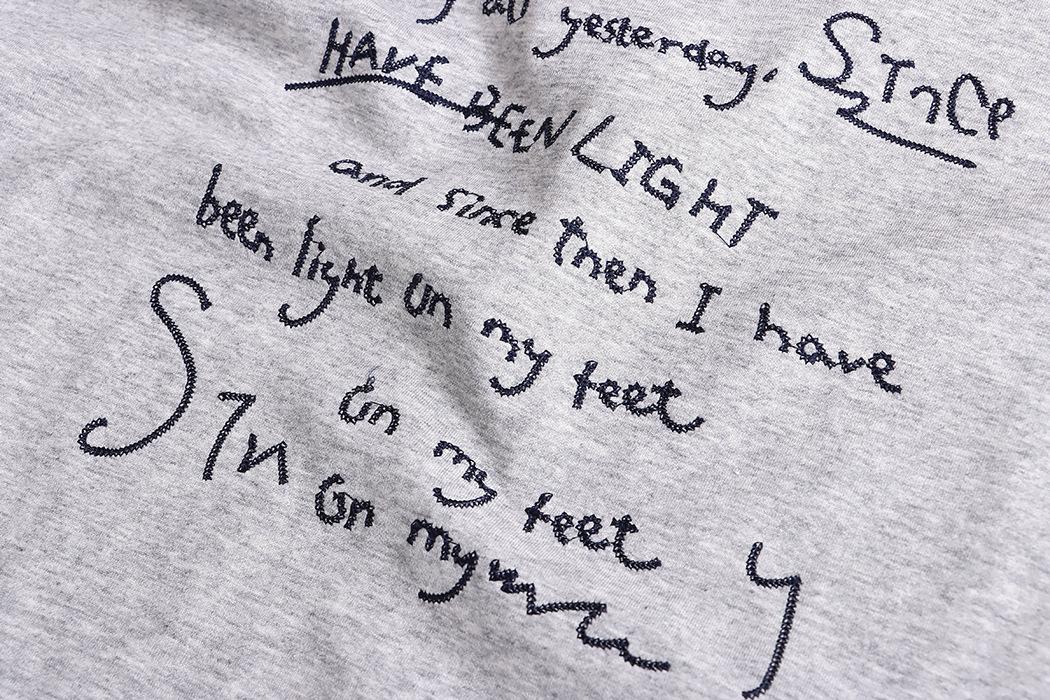 all yesterday. SINCE
HAVE BEEN LIGHT
and since then I have
been light on my feet
on my feet
Sin on my
y